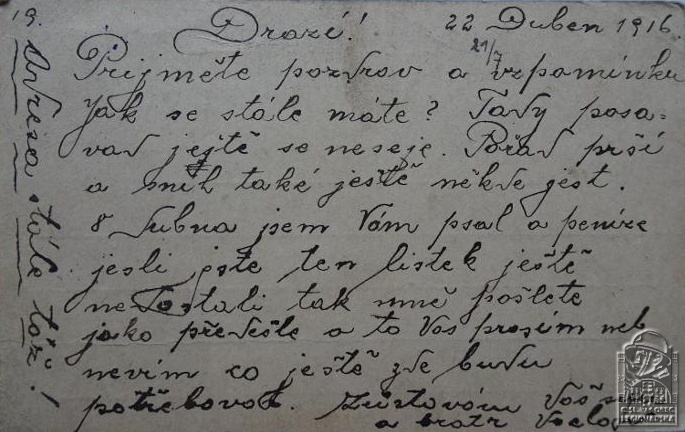 19.
Drazí!
22 Duben 1916.
21/7
Přijměte pozdrav a vzpomínku
Jak se stále máte? Tady posa-
vad ještě se neseje. Pořad prší
a sníh také ještě někde jest.
8 dubna jsem Vám psal a peníze
jesli jste ten listek ještě
nedostali tak mně pošlete
jako předešle a to Vas prosím neb
nevím co ještě zde budu
potřebovat. Zůstavám Váš syn
a bratr Václav
Adresa stále táž!